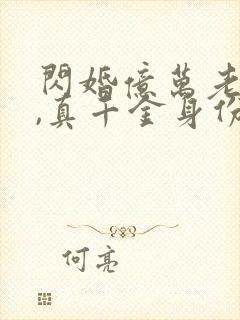 閃婚億萬老
,真千金身份
何亮